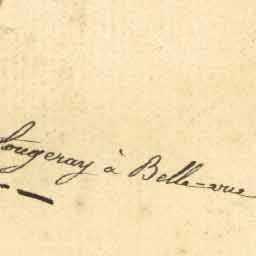 fougeray à Belle-vue